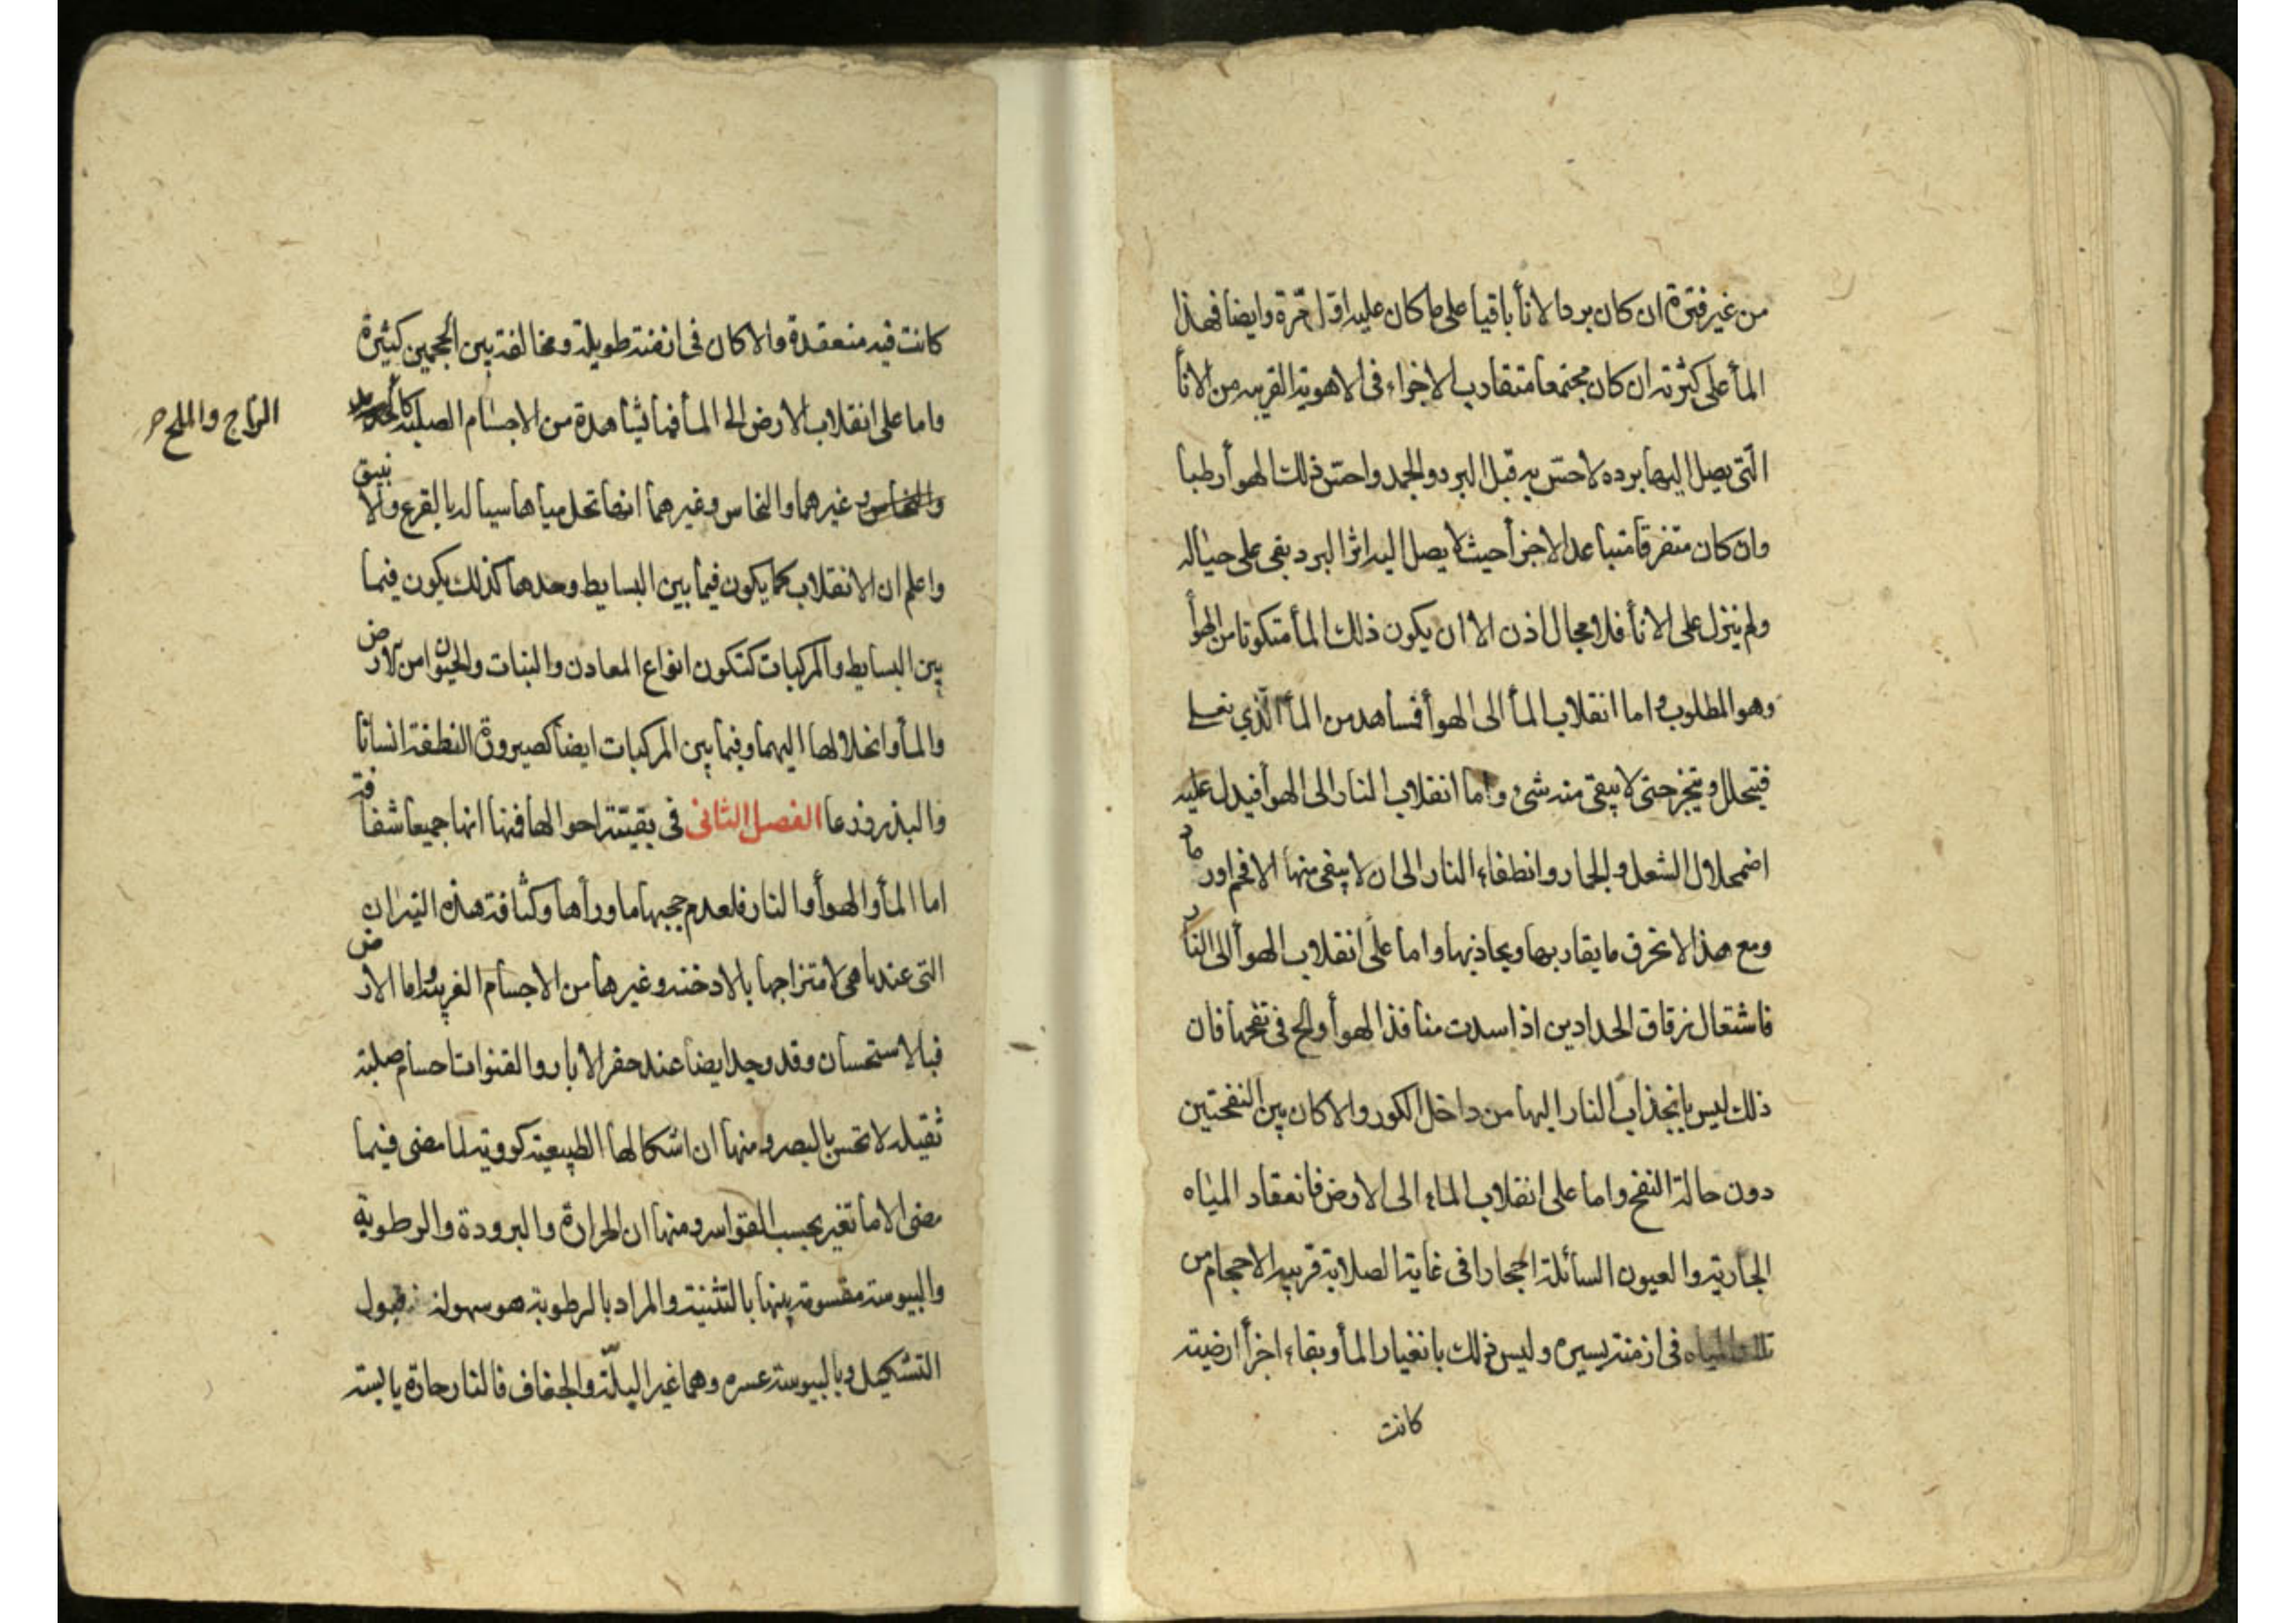 من غير فترة ان كان برد الانأ باقيا على ما كان عليه اول مرة وايضا فهذا
المأ على كثرته ان كان مجتمعا متقارب الاجزاء فى الاهوية القريبه من الانأ
الّتى يصل اليها برده لاحتس به قبل البرد والجمد واحتس ذلك الهوأ رطبا
وان كان متفرقا متباعد الاجزأ حيث لا يصل اليه اثر البرد بقى على حياله
ولم ينزل على الانأ فلا مجال اذن الا ان يكون ذلك المأ متكونا من الهوأ
وهو المطلوب و اما انقلاب المأ الى الهوأ فساهد من المأ الّذي يغلى
فيتحلل و يتبخر حتى لا يبقى منه شئ و اما انقلاب النار الى الهوأ فيدل عليه
اضمحلال الشعل و الجمار وانطفاء النار الى ان لا يبقى منها الا فحم او رماد
ومع هذا لا تحرق ما يقاربها ويحاذيها واما على انقلاب الهوأ الى النار
فاشتعال زقاق الحدادين اذا سدت منافذ الهوأ والح فى نفخها فان
ذلك ليس بانجذاب النار اليها من داخل الكور والا كان بين النفختين
دون حالة النفخ واما على انقلاب الماء الى الارض فانعقاد المياه
الجارية والعيون السائلة احجارا فى غاية الصلابة قريبه الاحجام من
تلك المياه فى ازمنة يسيره وليس ذلك بانغيار المأ وبقاء اجزأ ارضية
كانت
كانت فيه منعقدة والا كان فى ازمنة طويلة ومخالفة بين الحجمين كثيرة
واما على انقلاب الارض الى المأ فما يشاهدة من الاجسام الصلبة كا
الزاج والملح
غيرهما والنحاس وغيرهما انها تحل مياها سيالة بالقرع والانبيق
واعلم ان الانقلاب كما يكون فيما بين البسايط وحدها كذلك يكون فيما
بين البسايط والمركبات كتكون انواع المعادن والنبات والحيوان من الارض
والمأ وانحلالها اليهما وفيما بين المركبات ايضا كصيرورة النطفة انسانا
والبذر زرعا الفصل الثانى فى بقيّة احوالها فمنها انها جميعا شفافة
اما المأ والهوأ والنار فلعدم حجبها ما ورأها وكثافة هذه النيران
التى عندنا هى لامتزاجها بالادخنه وغيرها من الاجسام الغريبة واما الارض
فبالاستحسان وقد وجد ايضا عند حفر الابار والقنوات اجسام صلبة
ثقيله لا تحس بالبصر و منها ان اشكالها الطبيعية كروية لما مضى فيما
مضى الا ما تغير بحسب القواسر و منها ان الحرارة والبرودة والرطوبة
واليبوسة مقسومة بينها بالتثنية والمراد بالرطوبة هو سهولة قبول
التشكيل و باليبوسة عسره وهما غير البلّة والجفاف فالنار حارة يابسة